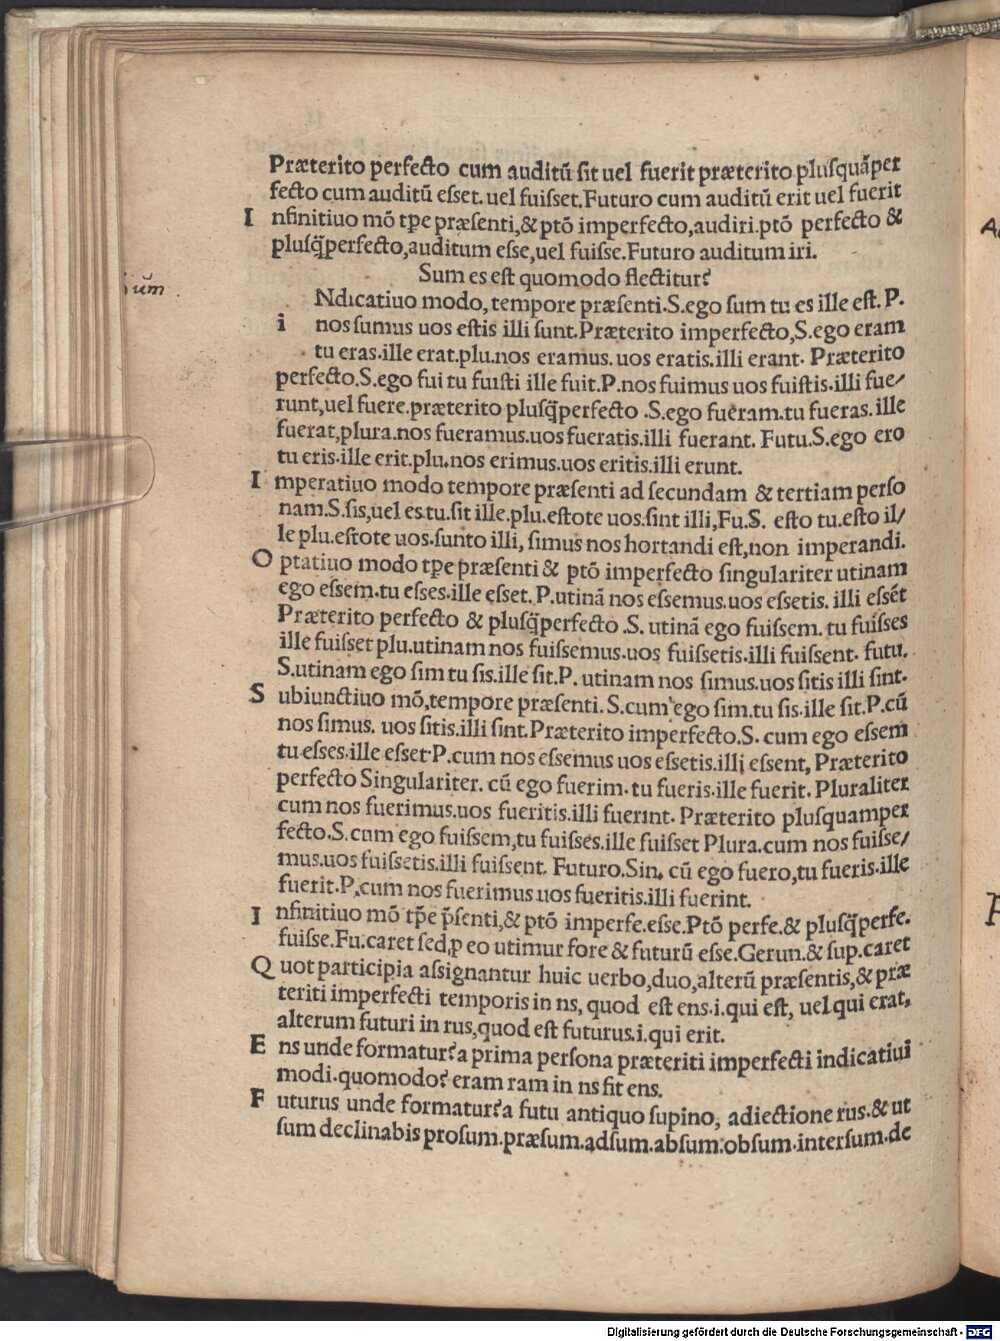 Præterito perfecto cum auditũ ſit uel fuerit præterito pluſquãper
fecto cum auditũ eſſet. uel fuiſſet. Futuro cum auditũ erit uel fuerit
I nfinitiuo mõ tp̃e præſenti,& ptõ imperfecto,audiri.ptõ perfecto &
pluſq̃perfecto,auditum eſſe,uel fuiſſe.Futuro auditum iri.
Sum es eſt quomodo flectitur?
ũm
Ndicatiuo modo, tempore præſenti.S.ego ſum tu es ille eſt. P.
i nos ſumus uos eſtis illi ſunt.Præterito imperfecto,S.ego eram
tu eras.ille erat.plu.nos eramus. uos eratis.illi erant. Præterito
perfecto.S.ego fui tu fuiſti ille fuit.P.nos fuimus uos fuiſtis.illi fue/
runt,uel fuere.præterito pluſq̃perfecto .S.ego fueram.tu fueras. ille
fuerat,plura.nos fueramus.uos fueratis.illi fuerant. Futu.S.ego ero
tu eris.ille erit.plu.nos erimus.uos eritis.illi erunt.
I mperatiuo modo tempore præſenti ad ſecundam & tertiam perſo
nam.S.ſis,uel es.tu.ſit ille.plu.eſtote uos.ſint illi,Fu.S. eſto tu.eſto il/
le plu.eſtote uos.ſunto illi, ſimus nos hortandi eſt,non imperandi.
O ptatiuo modo tp̃e præſenti & ptõ imperfecto ſingulariter utinam
ego eſſem.tu eſſes.ille eſſet.P.utinã nos eſſemus.uos eſſetis. illi eſſẽt
Præterito perfecto & pluſq̃perfecto .S. utinã ego fuiſſem. tu fuiſſes
ille fuiſſet plu.utinam nos fuiſſemus.uos fuiſſetis.illi fuiſſent. futu.
S.utinam ego ſim tu ſis.ille ſit.P. utinam nos ſimus.uos ſitis illi ſint.
S ubiunctiuo mõ,tempore præſenti. S.cum ego ſim.tu ſis.ille ſit.P.cũ
nos ſimus. uos ſitis.illi ſint.Præterito imperfecto.S. cum ego eſſem
tu eſſes.ille eſſet P.cum nos eſſemus uos eſſetis.illi eſſent, Præterito
perfecto Singulariter. cũ ego fuerim. tu fueris.ille fuerit. Pluraliter
cum nos fuerimus.uos fueritis.illi fuerint. Præterito pluſquamper
fecto.S.cum ego fuiſſem,tu fuiſſes.ille fuiſſet Plura.cum nos fuiſſe/
mus.uos fuiſſetis.illi fuiſſent. Futuro.Sin. cũ ego fuero,tu fueris.ille
fuerit.P.cum nos fuerimus uos fueritis.illi fuerint.
I nfinitiuo mõ tp̃e p̃ſenti,& ptõ imperfe.eſſe.Ptõ perfe.& pluſq̃perfe.
fuiſſe.Fu.caret ſed,ꝓ eo utimur fore & futurũ eſſe.Gerun.& ſup.caret
Q uot participia aſſignantur huic uerbo,duo,alterũ præſentis,& præ
teriti imperfecti temporis in ns, quod eſt ens.i.qui eſt, uel qui erat,
alterum futuri in rus,quod eſt futurus.i.qui erit.
E ns unde formatur?a prima perſona præteriti imperfecti indicatiui
modi.quomodo? eram ram in ns fit ens.
F uturus unde formatur?a futu antiquo ſupino, adiectione rus.& ut
ſum declinabis proſum.præſum.adſum.abſum.obſum.interſum.de
Digitalisierung gefördert durch die Deutsche Forschungsgemeinschaft - DFG